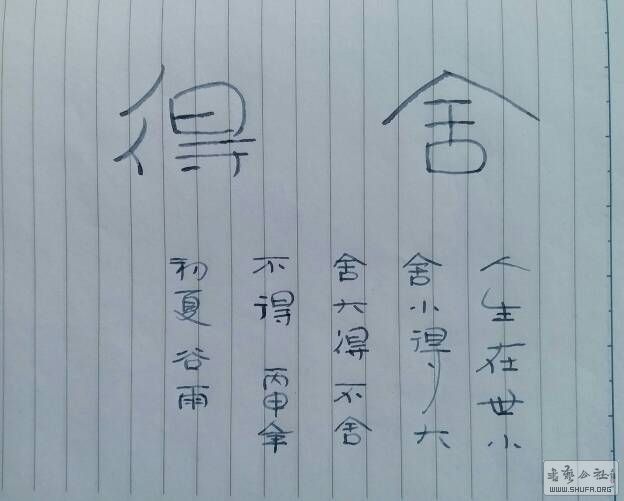 舍得
人生在世小
舍小得大
舍大得不舍
不得 丙申年
初夏 谷雨
书艺公社
WWW.SHUFA.ORG